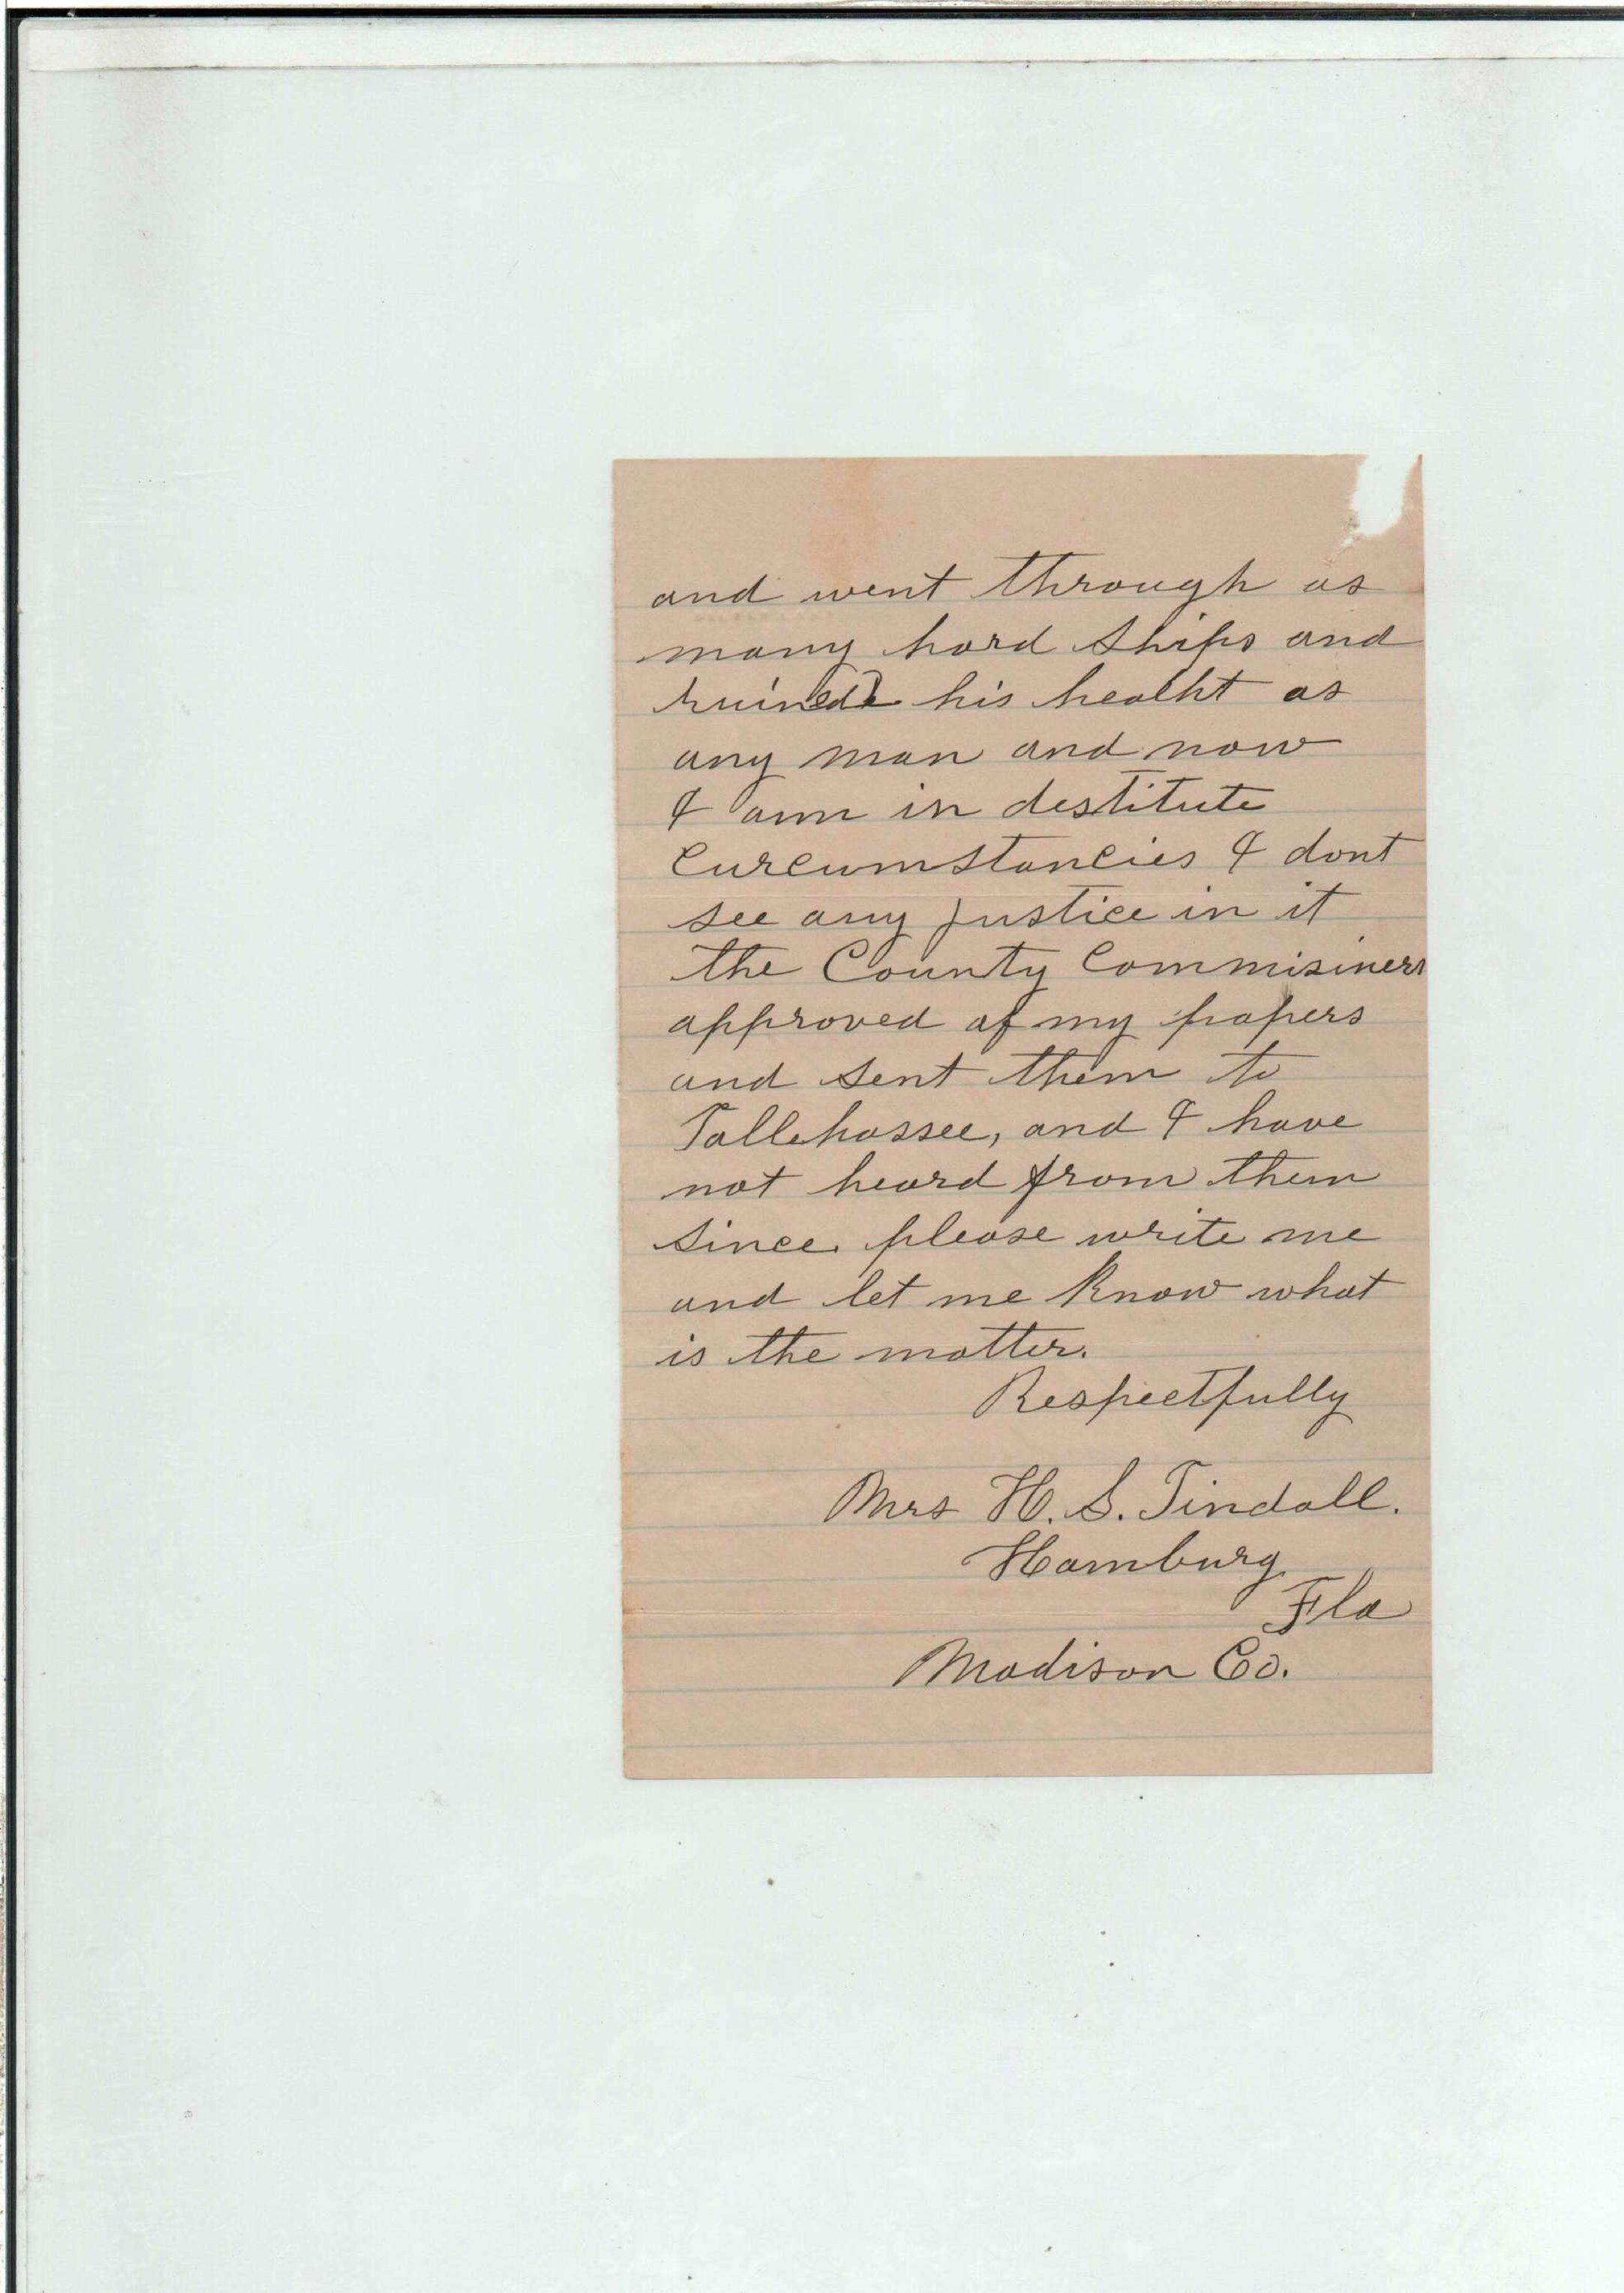 and went through as
many hard ships and
ruined his healht as
any man and now
I am in destitute
Curcumstancies I dont
see any justice in it
the County Commisiners
approved of my papers
and sent them to
Tallehassee, and I have
not heard from them
since. please write me
and let me know what
is the matter.
Respectfully
Mrs H. S. Tindall.
Hamburg
Fla
Madison Co.